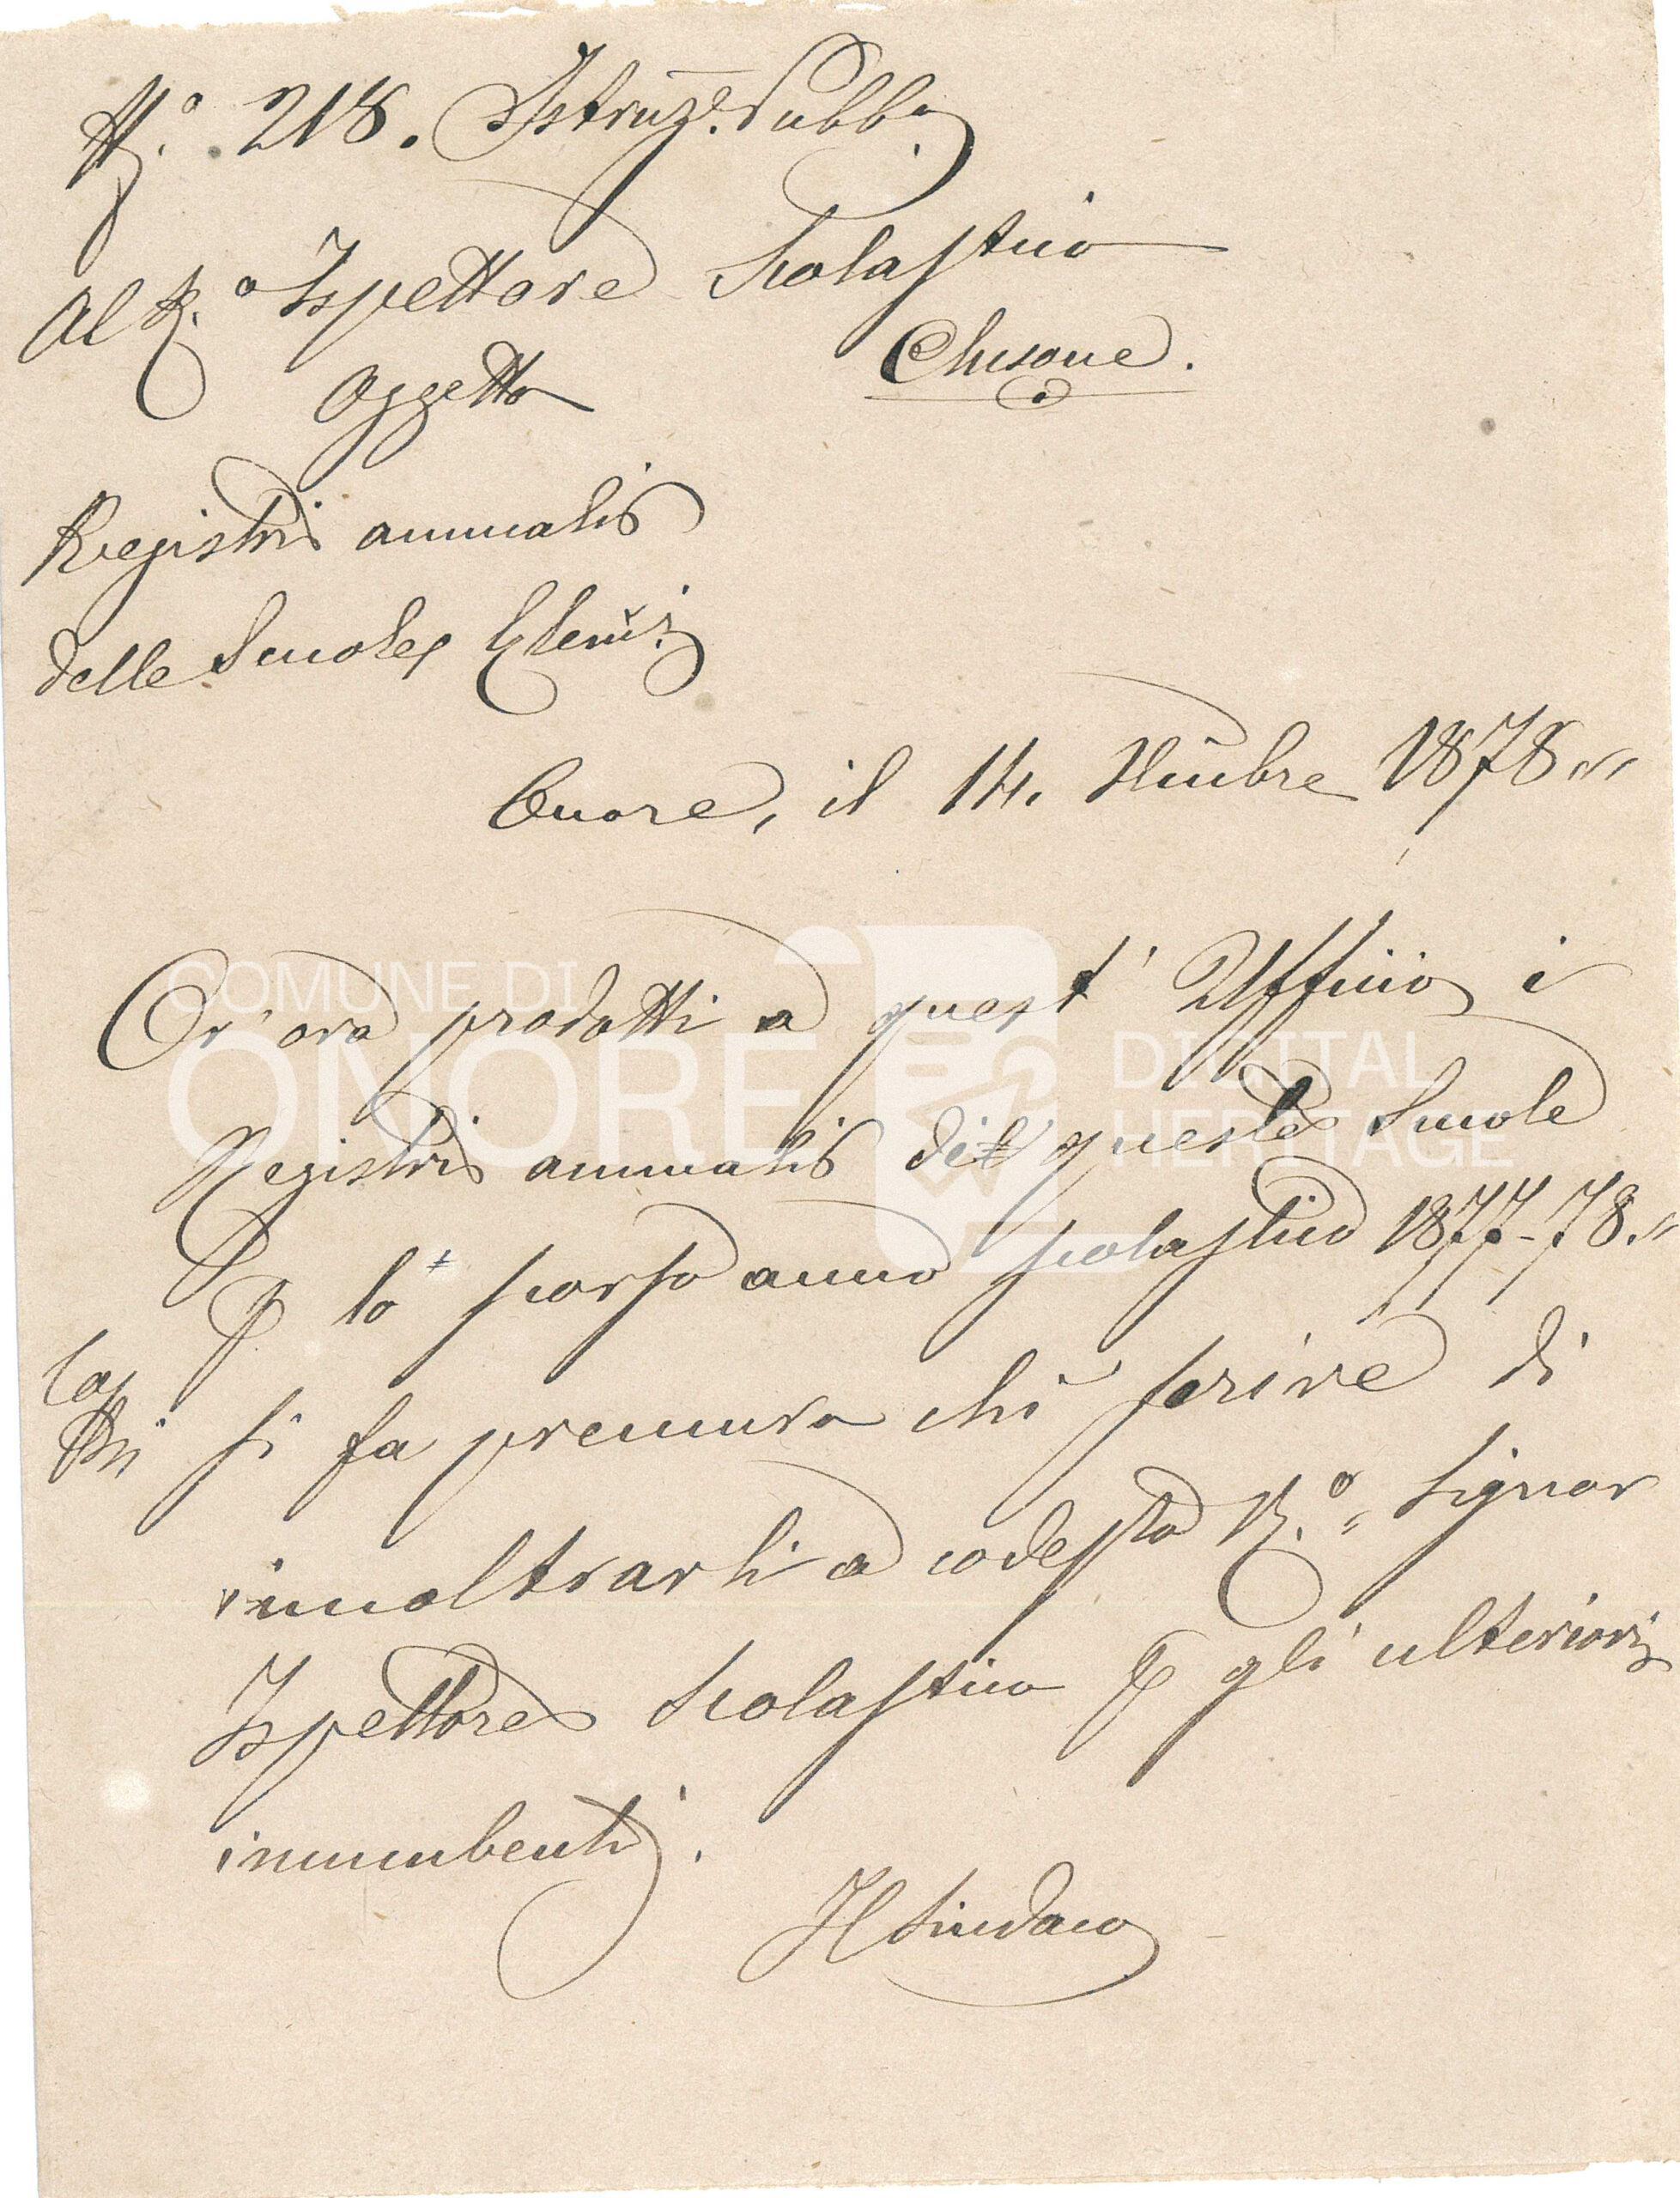 N.° 218. Istruz.e Pubb.a
Al R.° Ispettore Scolastico
Clusone.
Oggetto
Registri annuali
delle Scuole Elem.i
Onore, il 14. 9mbre 1878
Or' ora prodotti a quest' Ufficio i
Registri annuali di queste Scuole
lo scorso anno scolastico 1877-78.
si fa premura chi scrive di
innoltrarli a codesto R.° Signor
Ispettore Scolastico gli ulteriori
incumbenti.
Il Sindaco
COMUNE DI
ONORE
DIGITAL
HERITAGE